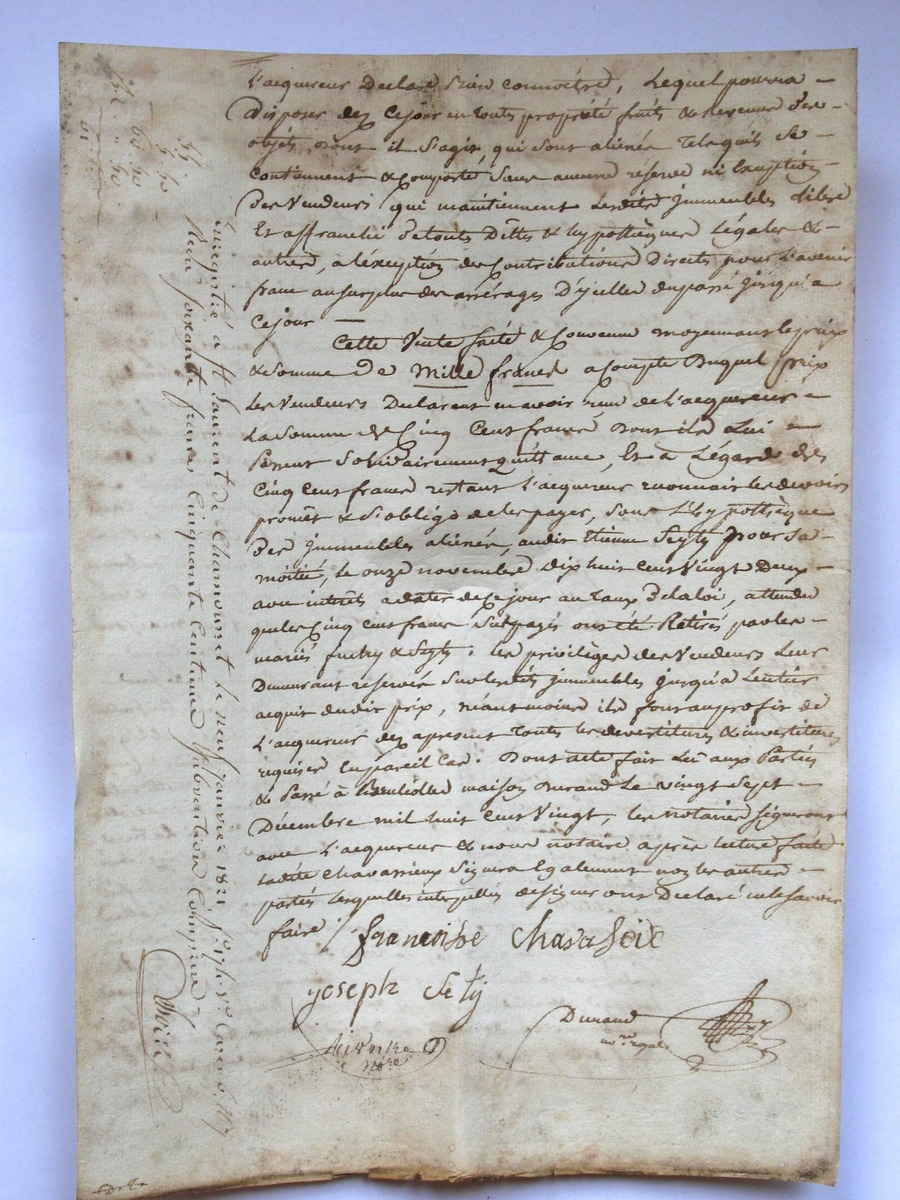 l'acquereur Declare bien connoitre, Lequel pourra
Disposer dez Cejour en touts propriété fruits & Revenus des
objets dont il s'agit, qui sont alienés Telsquils se
contiennent & comporte sans aucune réserve ni Exception
Des Vendeurs qui maintiennent lesdits Immeubles Libre
Et affranchi detouts Dettes & hypotheques Légales &
autres, a lexception des Contributions Directs pour L'avenir
franc au surplus des arrérages D'ycelles du passé jusqu'a
Cejour —
Cette Vente faite & Convenue moyennant le prix
& somme De Mille francs acompte Duquel prix
Les Vendeurs Declarent en avoir recu de L'acquereur
La somme de Cinq Cent francs dont ils Lui
Passent solidairement quittance, Et a Légard des
Cinq Cent francs restant L'acquereur reconnait les devoir
promet & s'oblige de les payer, sous L'hypothèque
Des Immeubles alienés, audit Etienne Seyty pour sa
moitié, le onze novembre dix huit cent Vingt Deux
avec intérêts a dater de Cejour au Taux De la loi, attendu
que les Cinq cent francs ont été Retirés par les
mariés & Seyty. les privilèges des Vendeurs Leur
Demeurant reservés sur lesdits immeubles jusqu'a Lentier
acquit dudit prix, néantmoins ils font au profit de
L'acquereur dez apresent Toutes les devestitures & investitures
requises En pareil Cas. Dont acte fait Lu aux Parties
& Passé à maison Durand Le vingt Sept
Décembre mil huit cent Vingt, les notaires signeront
avec L'acquereur & nous notaire après lecture faite
ladite Chavassieux signera Egalement non les autres
parties Lesquelles interpellés de signer ont Declaré ne le savoir
faire /.
francoise Chavasieu
joseph Sety
nore
Durand
nore royal
Enregistré à St Laurent de Chamousset le neuf janvier 1821
Recu soixante francs Cinquante Centimes Subvention Comprise